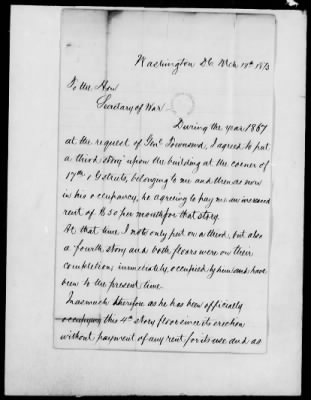 Washington D.C. Mch 19th 1873
To the Hon
Secretary of War
During the year 1867
at the request of Genl. Townsend, I agreed to put
a third story upon the building at the corner of
17th & G streets, belonging to me and then as now
in his occupancy, he agreeing to pay me an increased
rent of $50 per month for that story.
At that time I not only put on a third, but also
a fourth story and both floors were on their
completion, immediately occupied by him and have
been to the present time.
Inasmuch therefore as he has been officially
occupying this 4th story floor since its erection
without payment of any rent for its use and as